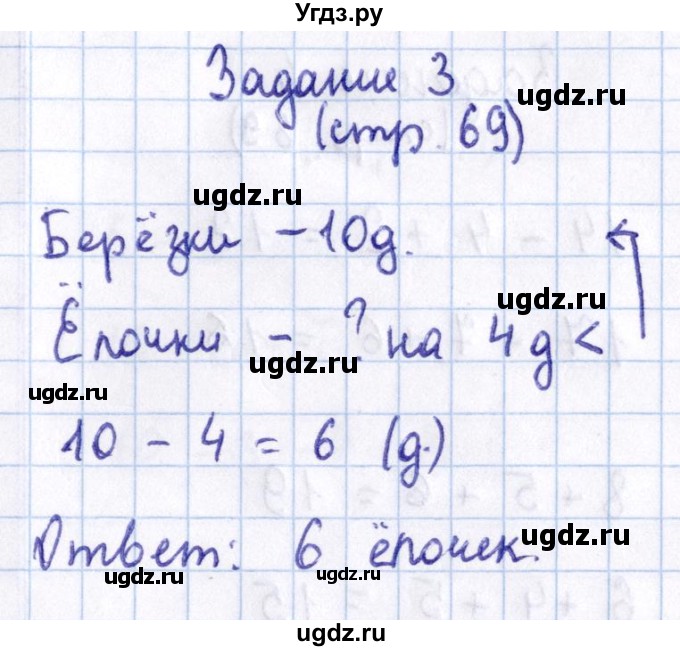 Угдз.ру
Задание 3
ugdz.ru
(стр. 69)
ugdz.ru
Берёзки - 10д.
ugdz.ru
Ёлочки - ? на 4 д <
ugdz.ru
ugdz.ru
10 - 4 = 6 (д.)
ugdz.ru
Ответ: 6 ёлочек.
ugdz.ru ugdz.ru
ugdz.ru